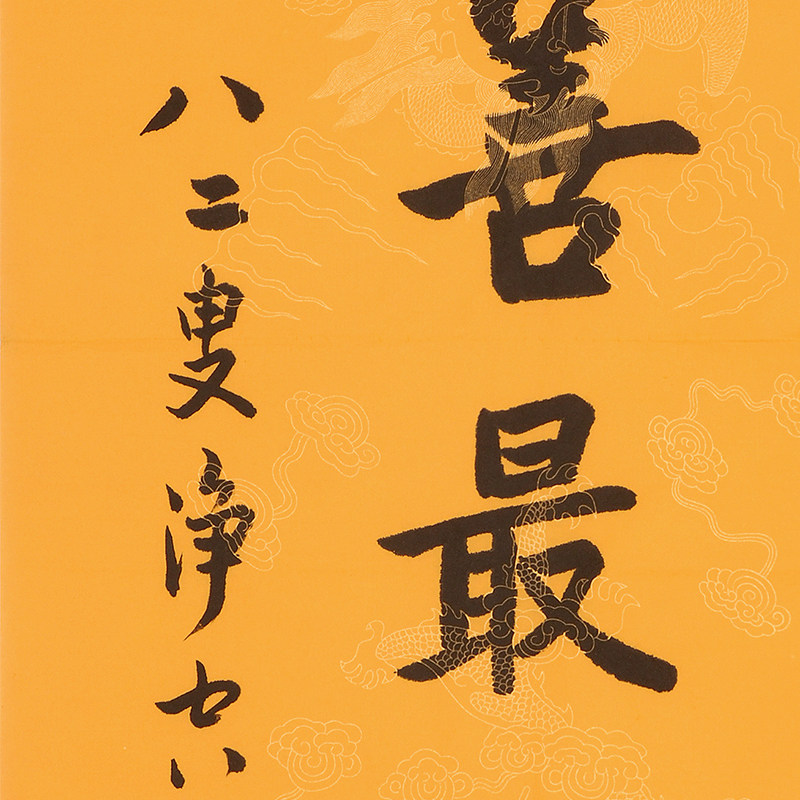 善最
八二叟淨空